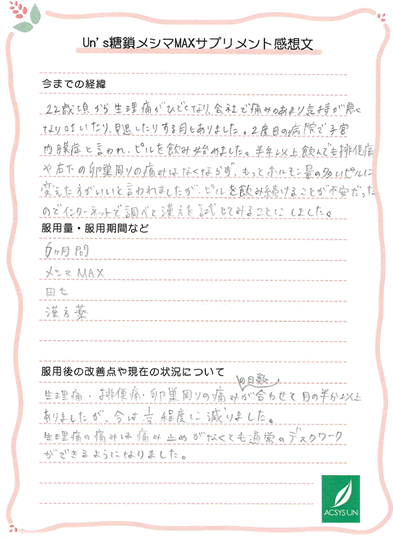 Un's糖鎖メシマMAXサプリメント感想文
今までの経緯
22歳頃から生理痛がひどくなり、会社で痛みのあまり気持が悪く
なりはいたり、早退したりする月もありました。2度目の病院で子宮
内膜症と言われ、ピルを飲み始めました。半年以上飲んでも排便痛
や左右の卵巣周りの痛みはなくならず、もっとホルモン量の多いピルに
変えた方がいいと言われましたが、ピルを飲み続けることが不安だった
のでインターネットで調べて漢方を試してみることにしました。
服用量・服用期間など
6ヵ月間
メシマMAX
田七
漢方薬
服用後の改善点や現在の状況について
の日数
生理痛・排便痛・卵巣周りの痛みが合わせて月の半分以上
ありましたが、今は1/3程度に減りました。
生理痛の痛みは痛み止めがなくても通常のデスクワーク
ができるようになりました。
ACSYS UN